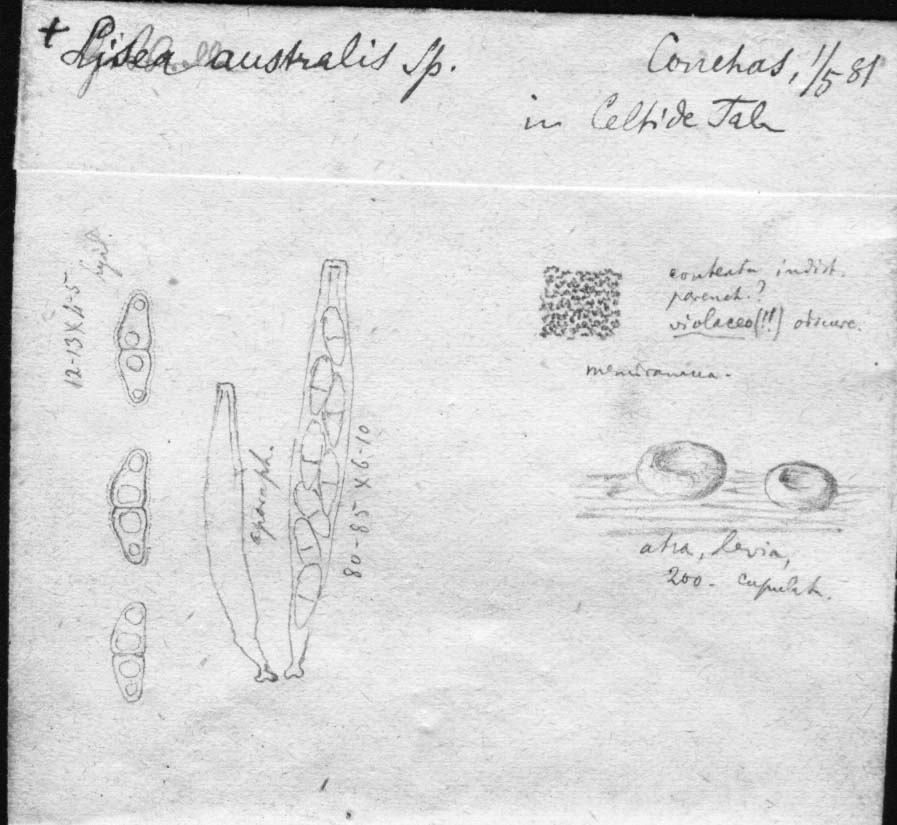 + Lisea australis Sp.
Conchas, 1/5 81
in Celtide Tala
12-13 X 4-5
hyal.
aparaph.
80-85 X 6-10
contextu indist.
parench.?
violaceo (!!) obscure.
membranacea -
atra, levia,
200 - cupulat.